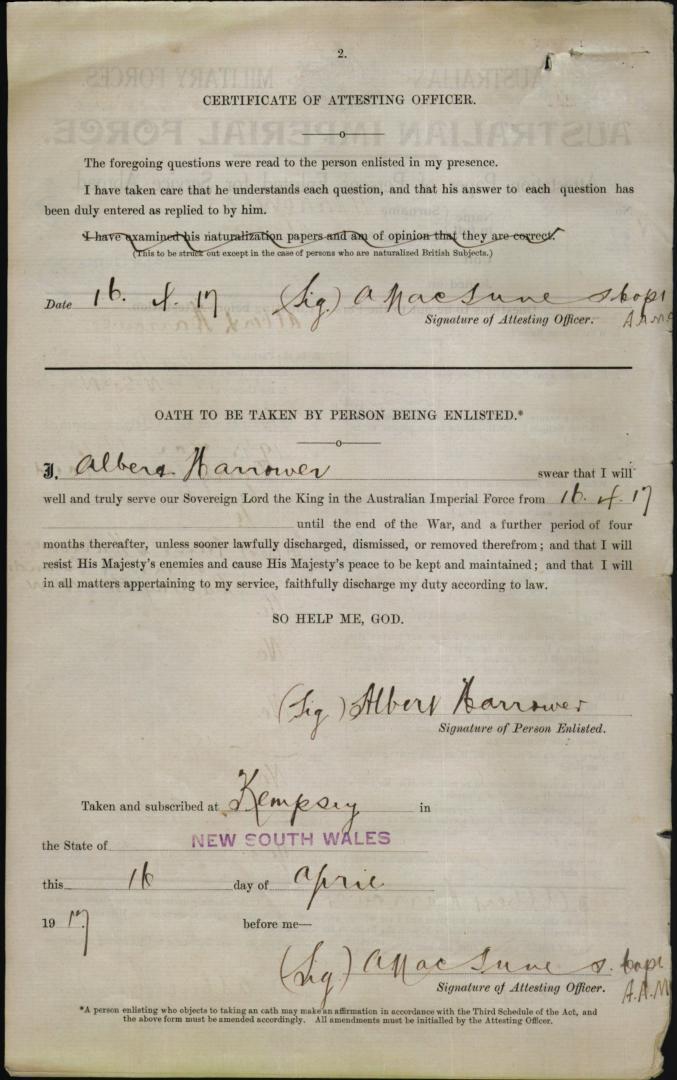 2.
CERTIFICATE OF ATTESTING OFFICER.
The foregoing questions were read to the person enlisted in my presence.
I have taken care that he understands each question, and that his answer to each question has
been duly entered as replied to by him.
I have examined his naturalization papers and am of opinion that they are correct.
(This to be struck out except in the case of persons who are naturalized British Subjects.)
Date 16. 4. 17 (Sig)
Signature of Attesting Officer.
OATH TO BE TAKEN BY PERSON BEING ENLISTED.*
I, Albert Harrower swear that I will
well and truly serve our Sovereign Lord the King in the Australian Imperial Force from 16. 4. 17
until the end of the War, and a further period of four
months thereafter, unless sooner lawfully discharged, dismissed, or removed therefrom; and that I will
resist His Majesty's enemies and cause His Majesty's peace to be kept and maintained; and that I will
in all matters appertaining to my service, faithfully discharge my duty according to law.
SO HELP ME, GOD.
(Sig) Albert Harrower
Signature of Person Enlisted.
Taken and subscribed at Kempsey in
the State of NEW SOUTH WALES
this 16 day of April
1917 before me—
(Sig)
Signature of Attesting Officer.
*A person enlisting who objects to taking an oath may make an affirmation in accordance with the Third Schedule of the Act, and
the above form must be amended accordingly. All amendments must be initialled by the Attesting Officer.